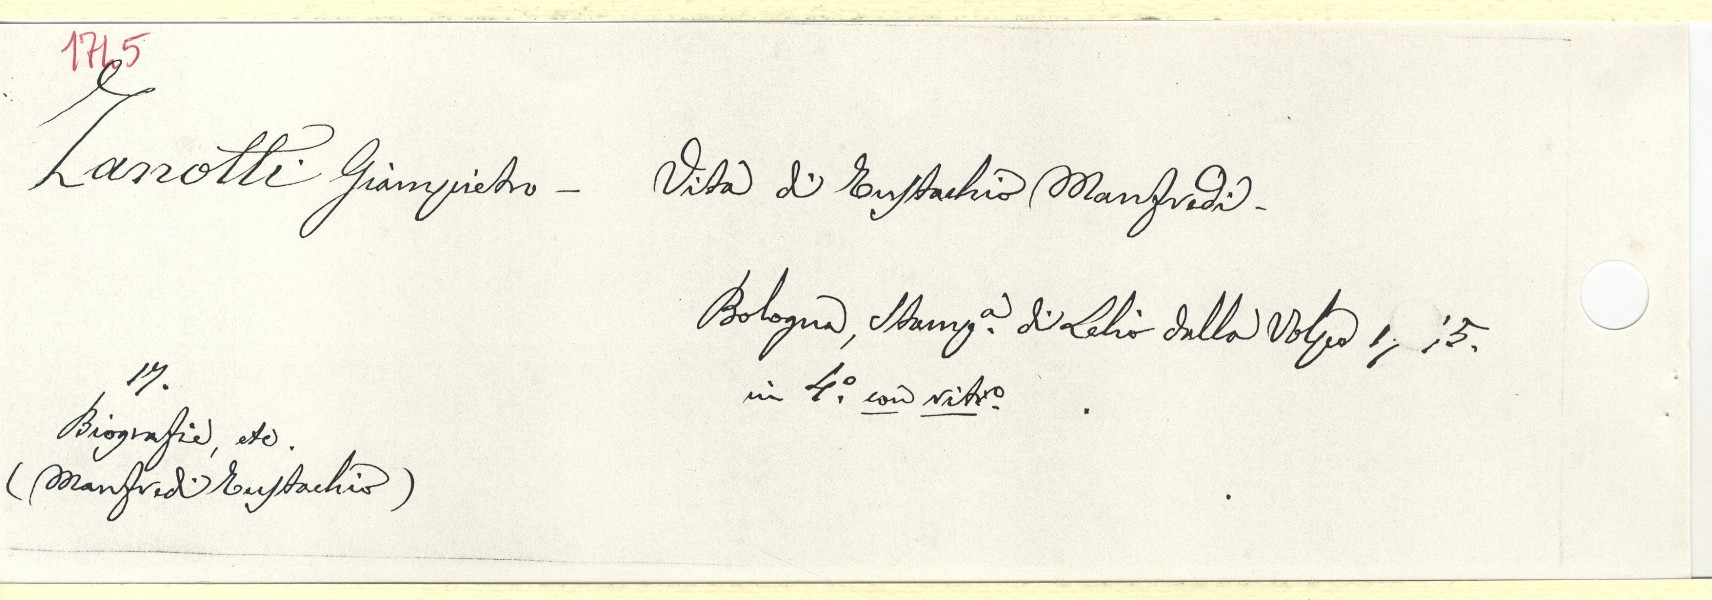 1745
Zanotti Giampietro - Vita di Eustachio Manfredi -
Bologna, Stamp.ª di Lelio dalla Volpe 1 5.
in 4.º con ritr.º
17.
Biografie, etc.
(Manfredi Eustachio)